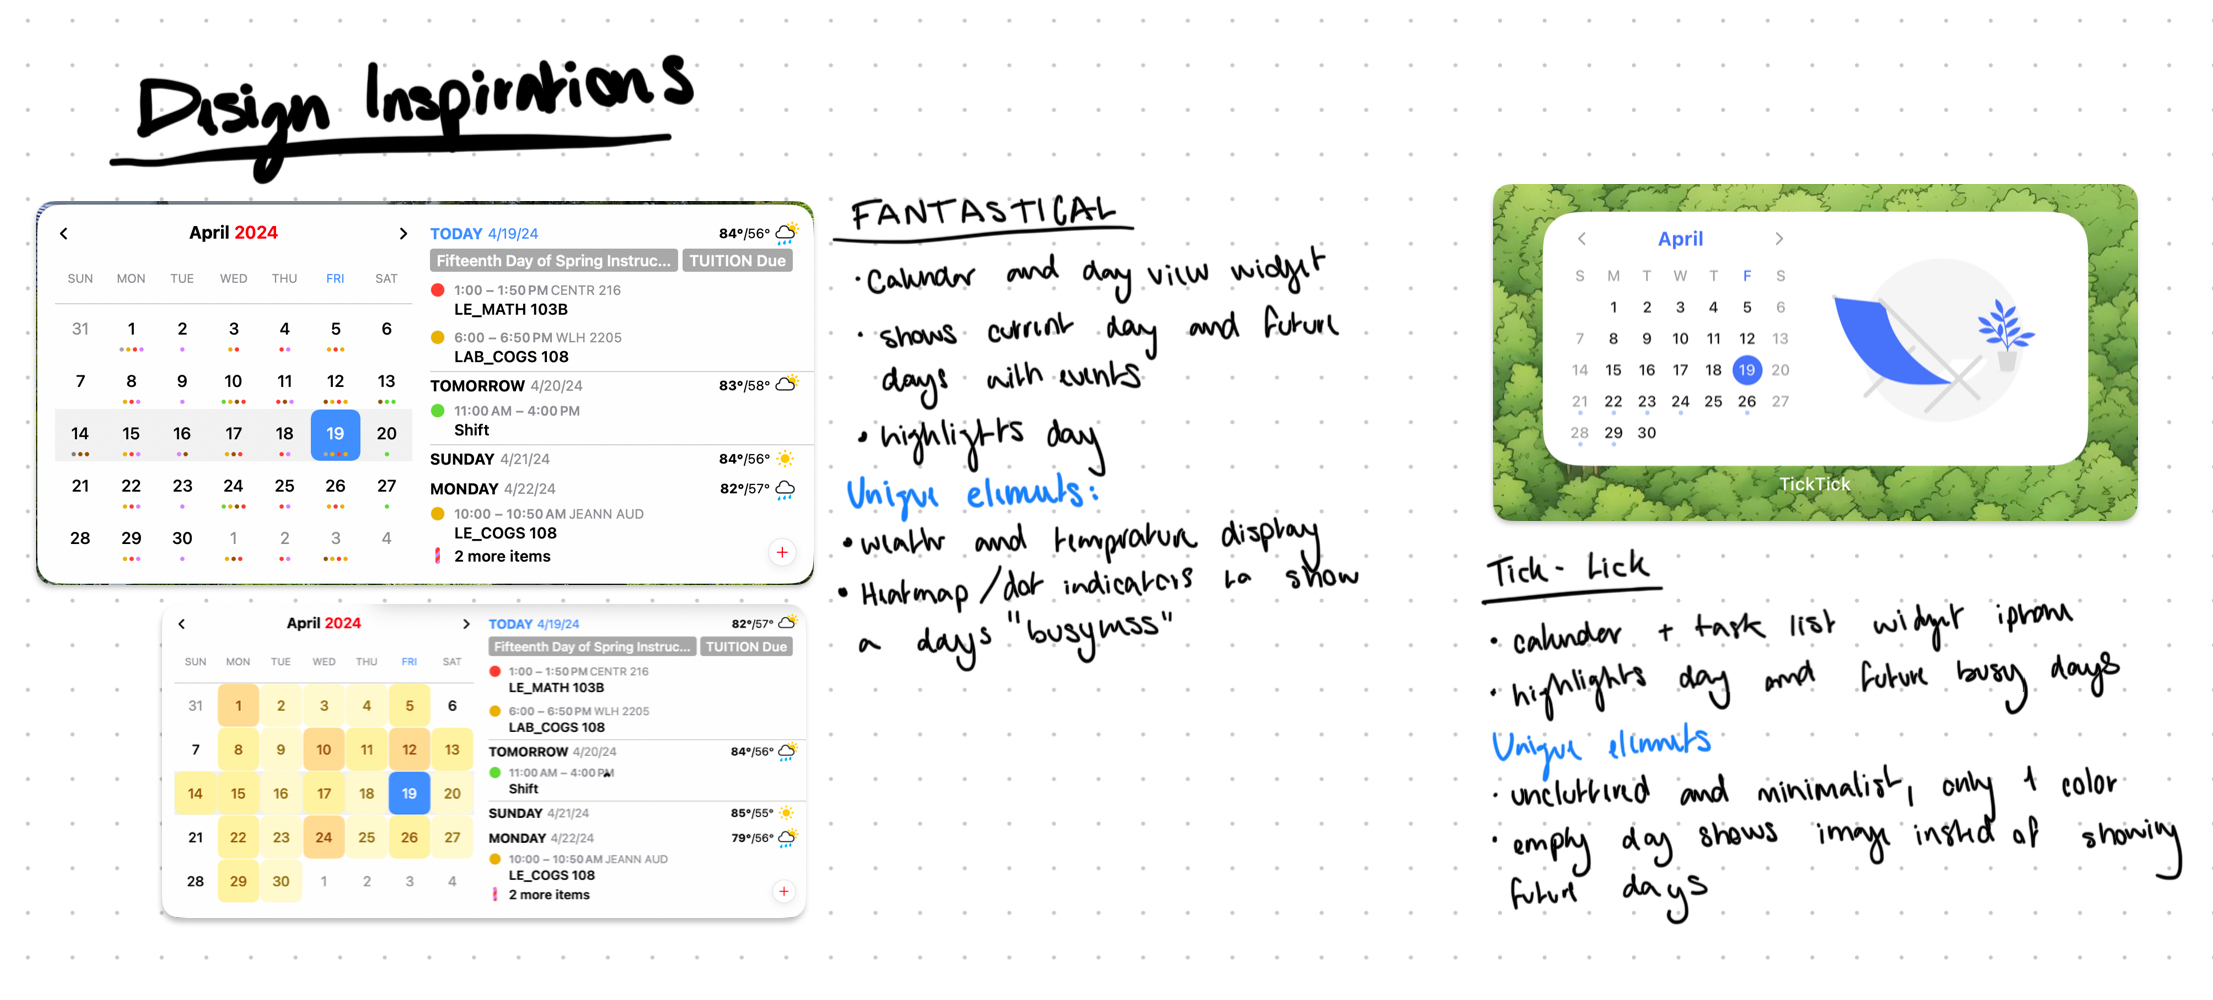 Design Inspirations
April 2024
SUN MON TUE WED THU FRI SAT
31 1 2 3 4 5 6
7 8 9 10 11 12 13
14 15 16 17 18 19 20
21 22 23 24 25 26 27
28 29 30 1 2 3 4
TODAY 4/19/24 84°/56°
Fifteenth Day of Spring Instruc... TUITION Due
1:00 – 1:50 PM CENTR 216
LE_MATH 103B
6:00 – 6:50 PM WLH 2205
LAB_COGS 108
TOMORROW 4/20/24 83°/58°
11:00 AM – 4:00 PM
Shift
SUNDAY 4/21/24 84°/56°
MONDAY 4/22/24 82°/57°
10:00 – 10:50 AM JEANN AUD
LE_COGS 108
2 more items
+
April 2024
SUN MON TUE WED THU FRI SAT
31 1 2 3 4 5 6
7 8 9 10 11 12 13
14 15 16 17 18 19 20
21 22 23 24 25 26 27
28 29 30 1 2 3 4
TODAY 4/19/24 82°/57°
Fifteenth Day of Spring Instruc... TUITION Due
1:00 – 1:50 PM CENTR 216
LE_MATH 103B
6:00 – 6:50 PM WLH 2205
LAB_COGS 108
TOMORROW 4/20/24 84°/56°
11:00 AM – 4:00 PM
Shift
SUNDAY 4/21/24 85°/55°
MONDAY 4/22/24 79°/56°
10:00 – 10:50 AM JEANN AUD
LE_COGS 108
2 more items
+
FANTASTICAL
• Calender and day view widget
• shows current day and future
days with events
• highlights day
Unique elements:
• weather and temprature display
• Heatmap / dot indicators to show
a days "busyness"
April
S M T W T F S
1 2 3 4 5 6
7 8 9 10 11 12 13
14 15 16 17 18 19 20
21 22 23 24 25 26 27
28 29 30
TickTick
Tick - tick
• calender + task list widget iphone
• highlights day and future busy days
Unique elements
• uncluttered and minimalist, only 1 color
• empty day shows image insted of showing
future days